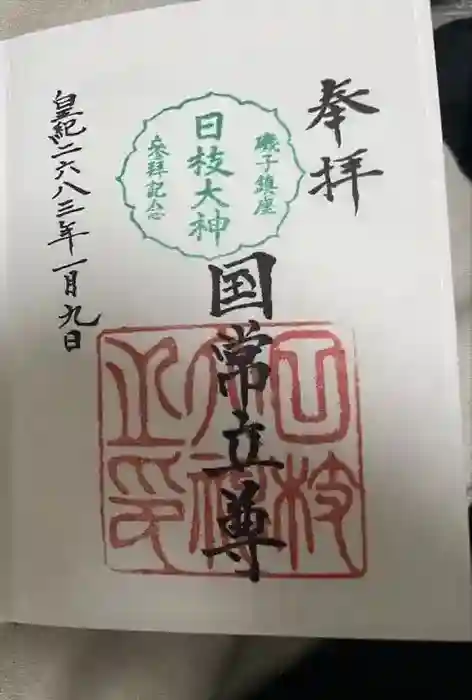 奉拝
磯子鎮座
日枝大神
参拝記念
国常立尊
日枝
大神
之印
皇紀二六八三年一月九日